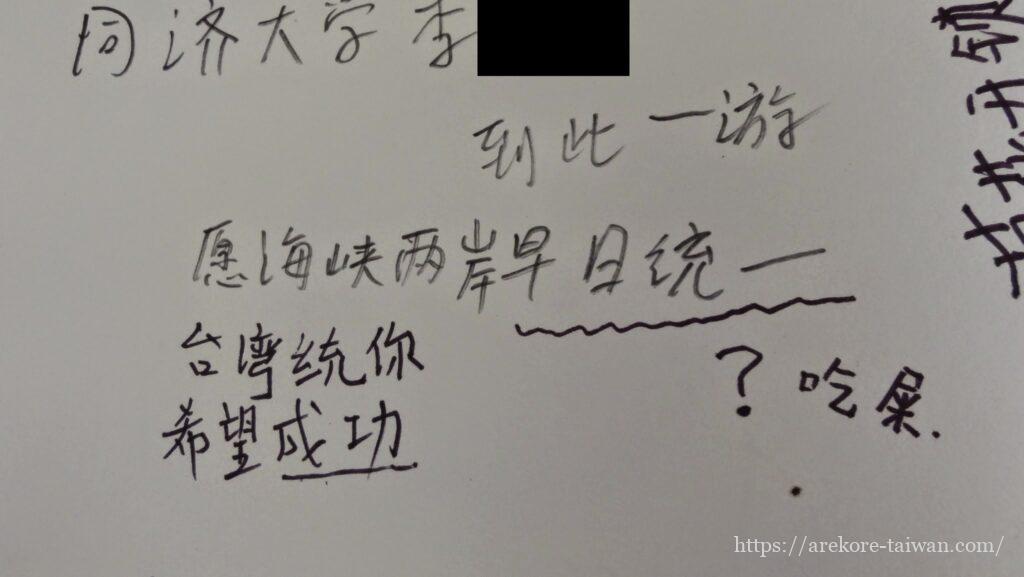 同济大学李
到此一游
愿海峡两岸早日统一
台湾统你
希望成功
? 吃屎.
https://arekore-taiwan.com/